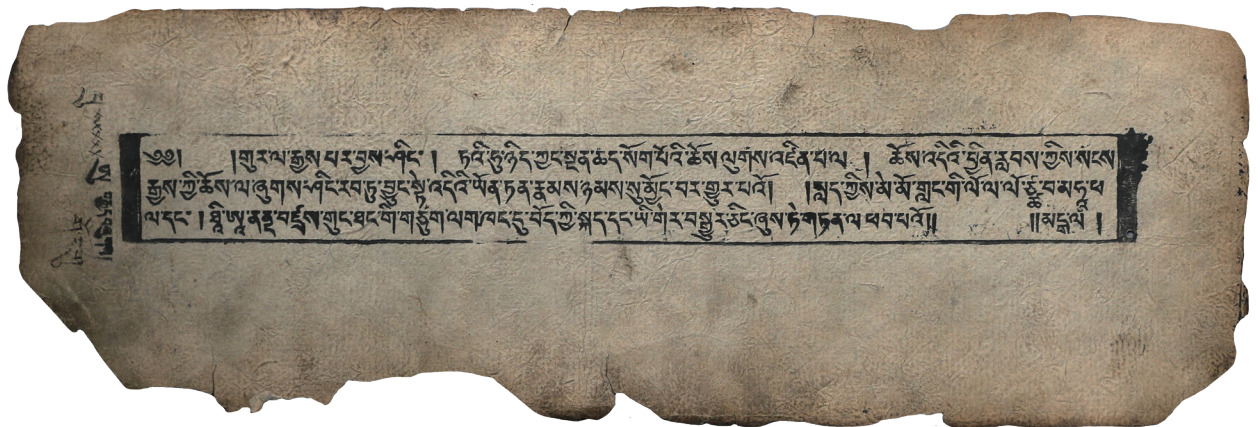 ༄༅། །གུར་ལ་རྒྱས་པར་བྱས་ཤིང་ ། ཏའི་ཧུ་ཉིད་ཀྱང་སྔན་ཆད་སོག་པོའི་ཆོས་ལུགས་འཛིན་པ་ལ ། ཆོས་འདིའི་བྱིན་རླབས་ཀྱིས་སངས
རྒྱས་ཀྱི་ཆོས་ལ་ཞུགས་ཤིང་རབ་ཏུ་བྱུང་སྟེ་འདིའི་ཡོན་ཏན་རྣམས་ཉམས་སུ་མྱོང་བར་གྱུར་པའོ། །སླད་ཀྱིས་མེ་མོ་གླང་གི་ལོ་ལ་ཧཱ་ཕ
ལ་དང་ ། ཨཱ་ནནྡ་བཛྲས་གུང་ཐང་གི་གཙུག་ལག་ཁང་དུ་བོད་ཀྱི་སྐད་དང་ཡི་གེར་བསྒྱུར་ཅིང་ཞུས་ཏེ་གཏན་ལ་ཕབ་པའོ།། །།མངྒ་ལཾ །